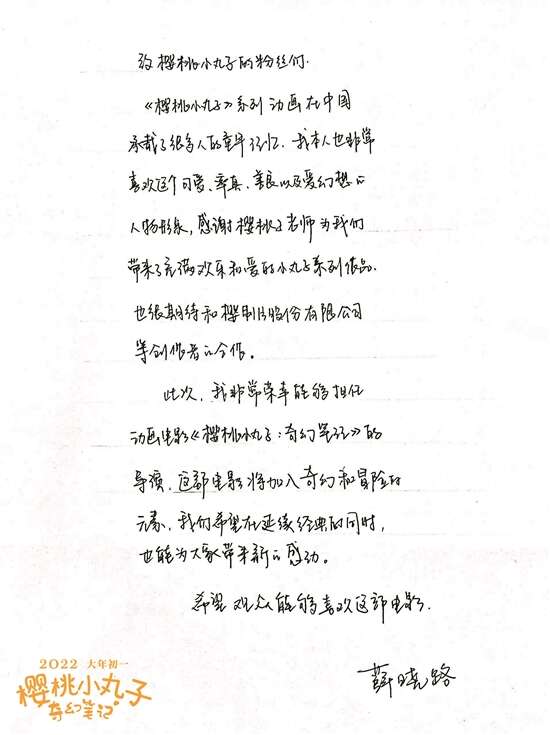 致樱桃小丸子的粉丝们.
《樱桃小丸子》系列动画在中国
承载了很多人的童年记忆、我本人也非常
喜欢这个可爱、率真、善良以及爱幻想的
人物形象,感谢樱桃子老师为我们
带来了充满欢乐和爱的小丸子系列作品.
也很期待和樱制片股份有限公司
等创作者的合作。
此次,我非常荣幸能够担任
动画电影《樱桃小丸子:奇幻笔记》的
导演.这部电影将加入奇幻和冒险的
元素,我们希望在延续经典的同时,
也能为大家带来新的感动。
希望观众能够喜欢这部电影.
薛晓路
2022 大年初一
樱桃小丸子
奇幻笔记